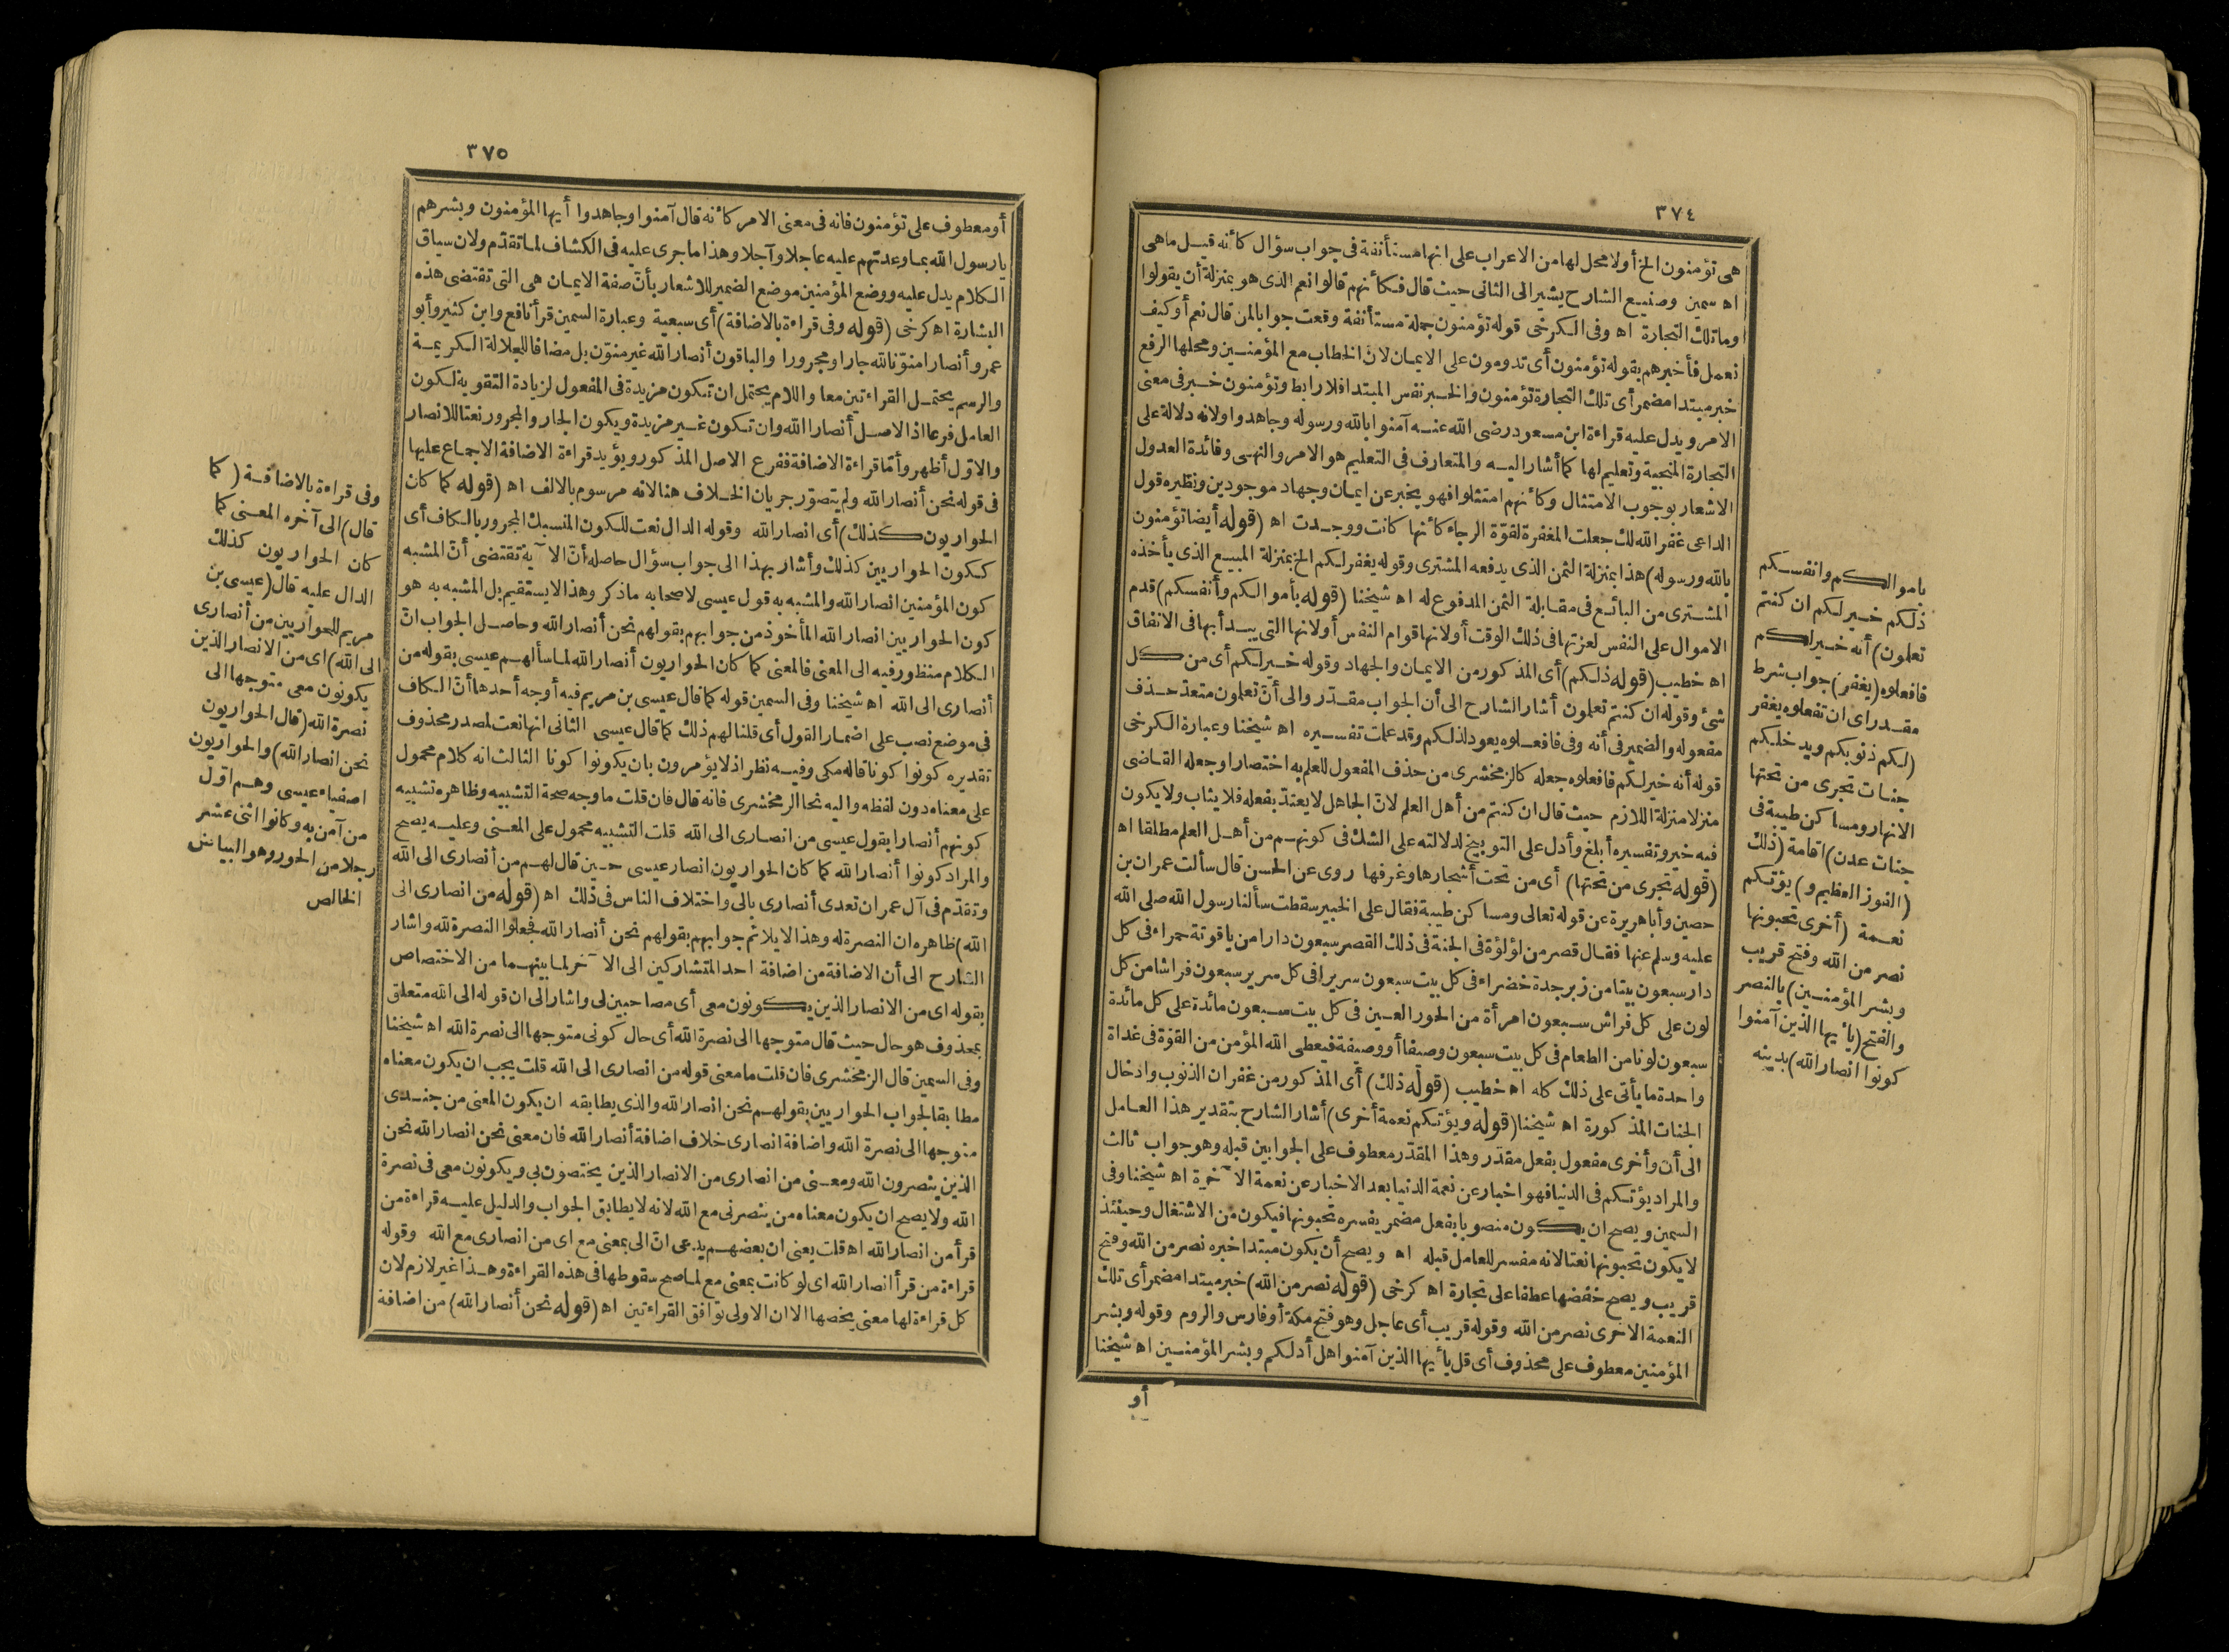 ٣٧٤
هى تؤمنون الخ أولا محل لها من الاعراب على انها مستأنفة فى جواب سؤال كأنه قيل ماهى
اه سمين وصنيع الشارح يشير الى الثانى حيث قال فكأنهم قالوا نعم الذى هو بمنزلة أن يقولوا
وماتلك التجارة اه وفى الكرخى قوله تؤمنون جملة مستأنفة وقعت جوابا لمن قال نعم أو كيف
نعمل فأخبرهم بقوله تؤمنون أى تدومون على الايمان لان الخطاب مع المؤمنين ومحلها الرفع
خبر مبتدا مضمر أى تلك التجارة تؤمنون والخبر نفس المبتدا فلا رابط وتؤمنون خبر فى معنى
الامر ويدل عليه قراءة ابن مسعود رضى الله عنه آمنوا بالله ورسوله وجاهدوا ولانه دلالة على
التجارة المنجية وتعليم لها كما أشار اليه والمتعارف فى التعليم هو الامر والنهى وفائدة العدول
الاشعار بوجوب الامتثال وكأنهم امتثلوا فهو يخبر عن ايمان وجهاد موجودين ونظيره قول
الداعى غفر الله لك جعلت المغفرة لقوّة الرجاء كأنها كانت ووجدت اه (قوله أيضا تؤمنون
بالله ورسوله) هذا بمنزلة الثمن الذى يدفعه المشترى وقوله يغفر لكم الخ بمنزلة المبيع الذى يأخذه
المشترى من البائع فى مقابلة الثمن المدفوع له اه شيخنا (قوله بأموالكم وأنفسكم) قدم
الاموال على النفس لعزتها فى ذلك الوقت أو لانها قوام النفس أو لانها التى يبدأ بها فى الانفاق
اه خطيب (قوله ذلكم) أى المذكور من الايمان والجهاد وقوله خير لكم أى من كل
شئ وقوله ان كنتم تعلمون أشار الشارح الى أن الجواب مقدّر والى أنّ تعلمون متعدّ حذف
مفعوله والضمير فى أنه وفى فافعلوه يعود لذلكم وقد علمت تفسيره اه شيخنا وعبارة الكرخى
قوله أنه خير لكم فافعلوه جعله كالزمخشرى من حذف المفعول للعلم به اختصارا وجعله القاضى
منزلا منزلة اللازم حيث قال ان كنتم من أهل العلم لان الجاهل لا يعتدّ بفعله فلا يثاب ولا يكون
فيه خير وتفسيره أبلغ وأدل على التوبيخ لدلالته على الشك فى كونهم من أهل العلم مطلقا اه
(قوله تجرى من تحتها) أى من تحت أشجارها وغرفها روى عن الحسن قال سألت عمران بن
حصين وأبا هريرة عن قوله تعالى ومساكن طيبة فقال على الخبير سقطت سألنا رسول الله صلى الله
عليه وسلم عنها فقال قصر من لؤلؤة فى الجنة فى ذلك القصر سبعون دارا من ياقوتة حمراء فى كل
دار سبعون بيتا من زبرجدة خضراء فى كل بيت سبعون سريرا فى كل سرير سبعون فراشا من كل
لون على كل فراش سبعون امرأة من الحور العين فى كل بيت سبعون مائدة على كل مائدة
سبعون لونا من الطعام فى كل بيت سبعون وصيفا أو وصيفة فيعطى الله المؤمن من القوّة فى غداة
واحدة ما يأتى على ذلك كله اه خطيب (قوله ذلك) أى المذكور من غفران الذنوب وادخال
الجنات المذكورة اه شيخنا (قوله ويؤتكم نعمة أخرى) أشار الشارح بتقدير هذا العامل
الى أن وأخرى مفعول بفعل مقدّر وهذا المقدّر معطوف على الجوابين قبله وهو جواب ثالث
والمراد يؤتكم فى الدنيا فهو اخبار عن نعمة الدنيا بعد الاخبار عن نعمة الآخرة اه شيخنا وفى
السمين ويصح ان يكون منصوبا بفعل مضمر يفسره تحبونها فيكون من الاشتغال وحينئذ
لا يكون تحبونها نعتا لانه مفسر للعامل قبله اه ويصح أن يكون مبتدا خبره نصر من الله وفتح
قريب ويصح خفضها عطفا على تجارة اه كرخى (قوله نصر من الله) خبر مبتدا مضمر أى تلك
النعمة الاخرى نصر من الله وقوله قريب أى عاجل وهو فتح مكة أو فارس والروم وقوله وبشر
المؤمنين معطوف على محذوف أى قل يأيها الذين آمنوا هل أدلكم وبشر المؤمنين اه شيخنا
أو
باموالكم وانفسكم
ذلكم خير لكم ان كنتم
تعلمون) أنه خير لكم
فافعلوه (يغفر) جواب شرط
مقدر اى ان تفعلوه يغفر
(لكم ذنوبكم ويدخلكم
جنات تجرى من تحتها
الانهار ومساكن طيبة فى
جنات عدن) اقامة (ذلك
(الفوز العظيم و) يؤتكم
نعمة (أخرى تحبونها
نصر من الله وفتح قريب
وبشر المؤمنين) بالنصر
والفتح (يأيها الذين آمنوا
كونوا انصار الله) بدينه
٣٧٥
أو معطوف على تؤمنون فانه فى معنى الامر كأنه قال آمنوا وجاهدوا أيها المؤمنون وبشرهم
يارسول الله بما وعدتهم عليه عاجلا وآجلا وهذا ماجرى عليه فى الكشاف لما تقدّم ولان سياق
الكلام يدل عليه ووضع المؤمنين موضع الضمير للاشعار بأنّ صفة الايمان هى التى تقتضى هذه
البشارة اه كرخى (قوله وفى قراءة بالاضافة) أى سبعية وعبارة السمين قرأ نافع وابن كثير وأبو
عمرو أنصارا منوّنا لله جارا ومجرورا والباقون أنصار الله غير منوّن بل مضافا للجلالة الكريمة
والرسم يحتمل القراءتين معا واللام يحتمل ان تكون مزيدة فى المفعول لزيادة التقوية لكون
العامل فرعا اذ الاصل أنصارا الله وان تكون غير مزيدة ويكون الجار والمجرور نعتا للانصار
والاوّل أظهر وأمّا قراءة الاضافة ففرع الاصل المذكور ويؤيد قراءة الاضافة الاجماع عليها
فى قوله نحن أنصار الله ولم يتصوّر جريان الخلاف هنا لانه مرسوم بالالف اه (قوله كما كان
الحواريون كذلك) أى انصار الله وقوله الدال نعت للكون المنسبك المجرور بالكاف أى
ككون الحواريين كذلك وأشار بهذا الى جواب سؤال حاصله أن الآية تقتضى أنّ المشبه
كون المؤمنين انصار الله والمشبه به قول عيسى لاصحابه ماذكر وهذا لا يستقيم بل المشبه به هو
كون الحواريين انصار الله المأخوذ من جوابهم بقولهم نحن أنصار الله وحاصل الجواب انّ
الكلام منظور فيه الى المعنى فالمعنى كما كان الحواريون أنصار الله لما سألهم عيسى بقوله من
أنصارى الى الله اه شيخنا وفى السمين قوله كما قال عيسى بن مريم فيه أوجه أحدها أنّ الكاف
فى موضع نصب على اضمار القول أى قلنا لهم ذلك كما قال عيسى الثانى انها نعت لمصدر محذوف
تقديره كونوا كونا قاله مكى وفيه نظر اذ لا يؤمرون بان يكونوا كونا الثالث انه كلام محمول
على معناه دون لفظه واليه نحا الزمخشرى فانه قال فان قلت ماوجه صحة التشبيه وظاهره تشبيه
كونهم أنصارا بقول عيسى من انصارى الى الله قلت التشبيه محمول على المعنى وعليه يصح
والمراد كونوا أنصار الله كما كان الحواريون انصار عيسى حين قال لهم من أنصارى الى الله
وتقدّم فى آل عمران تعدى أنصارى بالى واختلاف الناس فى ذلك اه (قوله من انصارى الى
الله) ظاهره ان النصرة له وهذا لا يلائم جوابهم بقولهم نحن أنصار الله فجعلوا النصرة لله واشار
الشارح الى أن الاضافة من اضافة احد المتشاركين الى الآخر لما بينهما من الاختصاص
بقوله اى من الانصار الذين يكونون معى أى مصاحبين لى واشار الى ان قوله الى الله متعلق
بمحذوف هو حال حيث قال متوجها الى نصرة الله أى حال كونى متوجها الى نصرة الله اه شيخنا
وفى السمين قال الزمخشرى فان قلت مامعنى قوله من انصارى الى الله قلت يجب ان يكون معناه
مطابقا لجواب الحواريين بقولهم نحن انصار الله والذى يطابقه ان يكون المعنى من جندى
متوجها الى نصرة الله واضافة انصارى خلاف اضافة أنصار الله فان معنى نحن انصار الله نحن
الذين ينصرون الله ومعنى من انصارى من الانصار الذين يختصون بى ويكونون معى فى نصرة
الله ولا يصح ان يكون معناه من ينصرنى مع الله لانه لا يطابق الجواب والدليل عليه قراءة من
قرأ من انصار الله اه قلت يعنى ان بعضهم يدعى انّ الى بمعنى مع اى من انصارى مع الله وقوله
قراءة من قرأ انصار الله اى لو كانت بمعنى مع لما صح سقوطها فى هذه القراءة وهذا غير لازم لان
كل قراءة لها معنى يخصها الا ان الاولى توافق القراءتين اه (قوله نحن أنصار الله) من اضافة
وفى قراءة بالاضافة (كما
قال) الى آخره المعنى كما
كان الحواريون كذلك
الدال عليه قال (عيسى بن
مريم للحواريين من أنصارى
الى الله) اى من الانصار الذين
يكونون معى متوجها الى
نصرة الله (قال الحواريون
نحن انصار الله) والحواريون
اصفياء عيسى وهم اوّل
من آمن به وكانوا اثنى عشر
رجلا من الحور وهو البياض
الخالص